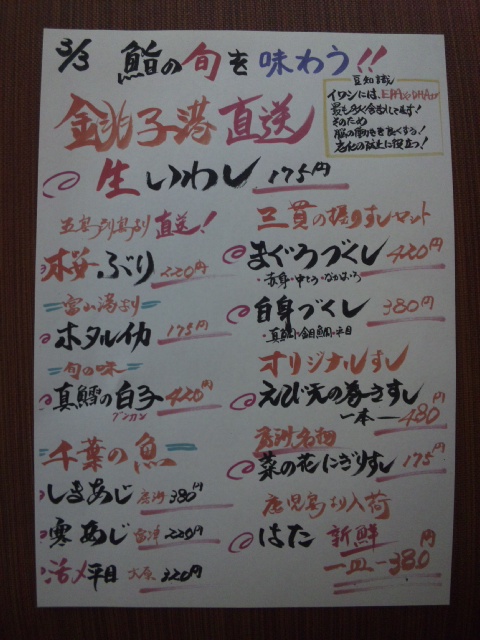 3/3 鮨の旬を味わう!!
豆知識
イワシには、EPAとDHAが
最も多く含まれてます!
そのため
脳の働きを良くする!
老化の防止に役立つ!
銚子港直送
生いわし 175円
五島列島より直送!
桜ぶり 220円
富山湾より
ホタルイカ 175円
旬の味
真鱈の白子 420円
グンカン
千葉の魚
しまあじ 380円
寒あじ 富津 220円
活〆平目 大原 320円
三貫の握りすしセット
まぐろづくし 420円
・赤身・中とろ・
白身づくし 380円
・真鯛・金目鯛・平目
オリジナルすし
えび天の巻きすし
一本 480円
房州名物
菜の花にぎりすし 175円
鹿児島より入荷
はた 新鮮
一皿 380円